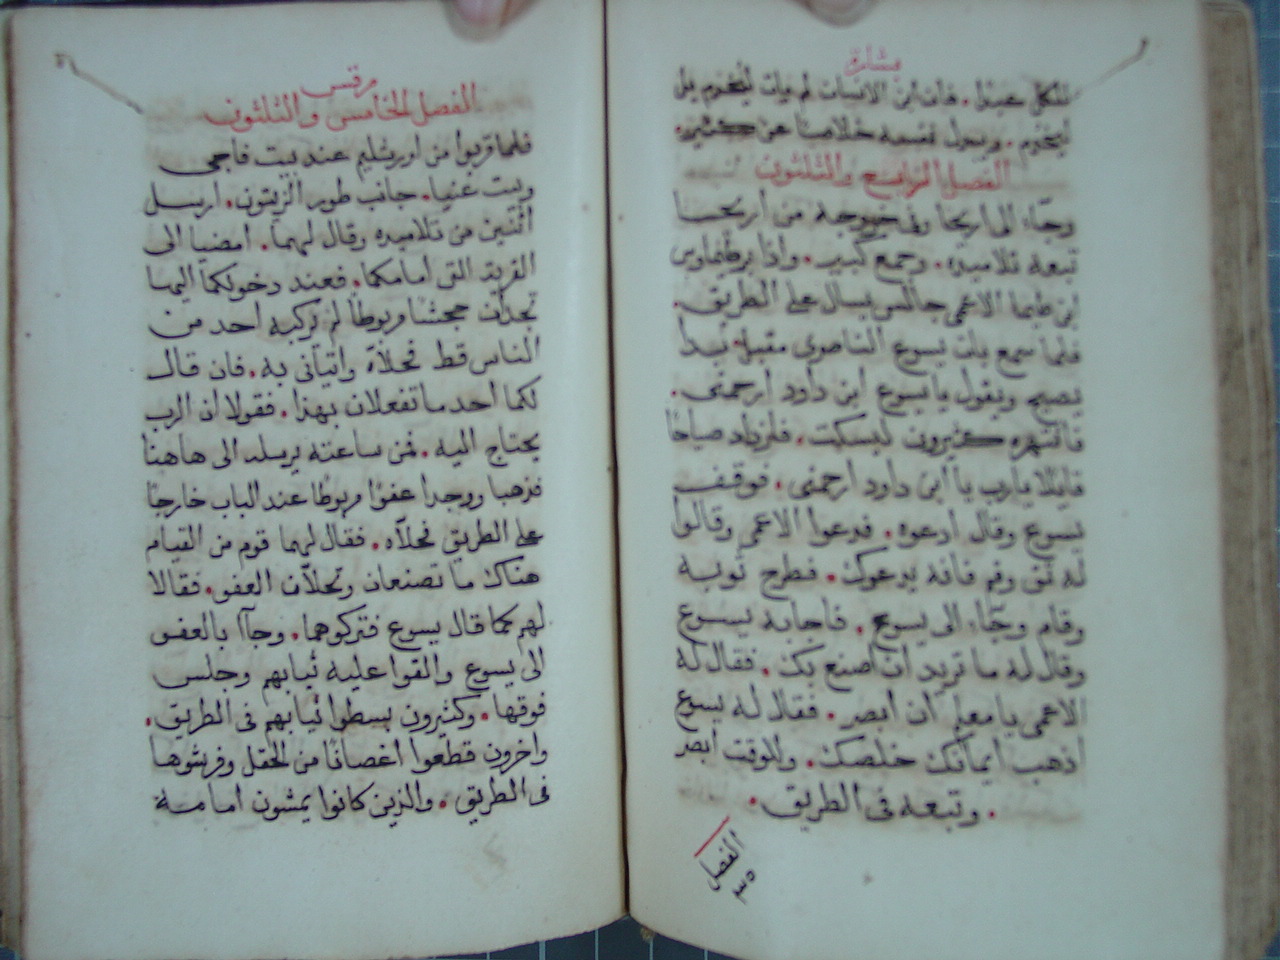 بشارة
للكل عبدا. فان ابن الانسان لم يات ليخدم بل
ليخدم. ويبذل نفسه خلاصا عن كثير.
الفصل الرابع والثلثون
وجاء الى اريحا وفي خروجه من اريحا
تبعه تلاميذه. وجمع كبير. واذا برطيماوس
ابن طيما الاعمى جالس يسال على الطريق.
فلما سمع بان يسوع الناصري مقبل بدا
يصيح ويقول يا يسوع ابن داود ارحمني.
فانتهره كثيرون ليسكت. فازداد صياحا
قايلا يارب يا ابن داود ارحمني. فوقف
يسوع وقال ادعوه. فدعوا الاعمى وقالوا
له ثق وقم فانه يدعوك. فطرح ثوبه
وقام وجاء الى يسوع. فاجابه يسوع
وقال له ما تريد ان اصنع بك. فقال له
الاعمى يا معلم ان ابصر. فقال له يسوع
اذهب ايمانك خلصك. وللوقت ابصر
. وتبعه في الطريق.
الفصل
٣٥
مرقس
الفصل الخامس والثلثون
فلما قربوا من اورشليم عند بيت فاجي
وبيت عنيا. جانب طور الزيتون. ارسل
اثنين من تلاميذه وقال لهما. امضيا الى
القرية التي امامكما. فعند دخولكما اليها
تجدان جحشا مربوطا لم يركبه احد من
الناس قط فحلاه واتياني به. فان قال
لكما احد ما تفعلان بهذا. فقولا ان الرب
يحتاج اليه. فمن ساعته يرسله الى هاهنا
فذهبا ووجدا عفوا مربوطا عند الباب خارجا
على الطريق فحلاه. فقال لهما قوم من القيام
هناك ما تصنعان وتحلان العفو. فقالا
لهم كما قال يسوع فتركوهما. وجاا بالعفو
الى يسوع والقوا عليه ثيابهم وجلس
فوقها. وكثيرون بسطوا ثيابهم في الطريق.
واخرون قطعوا اغصانا من الحقل وفرشوها
في الطريق. والذين كانوا يمشون امامه